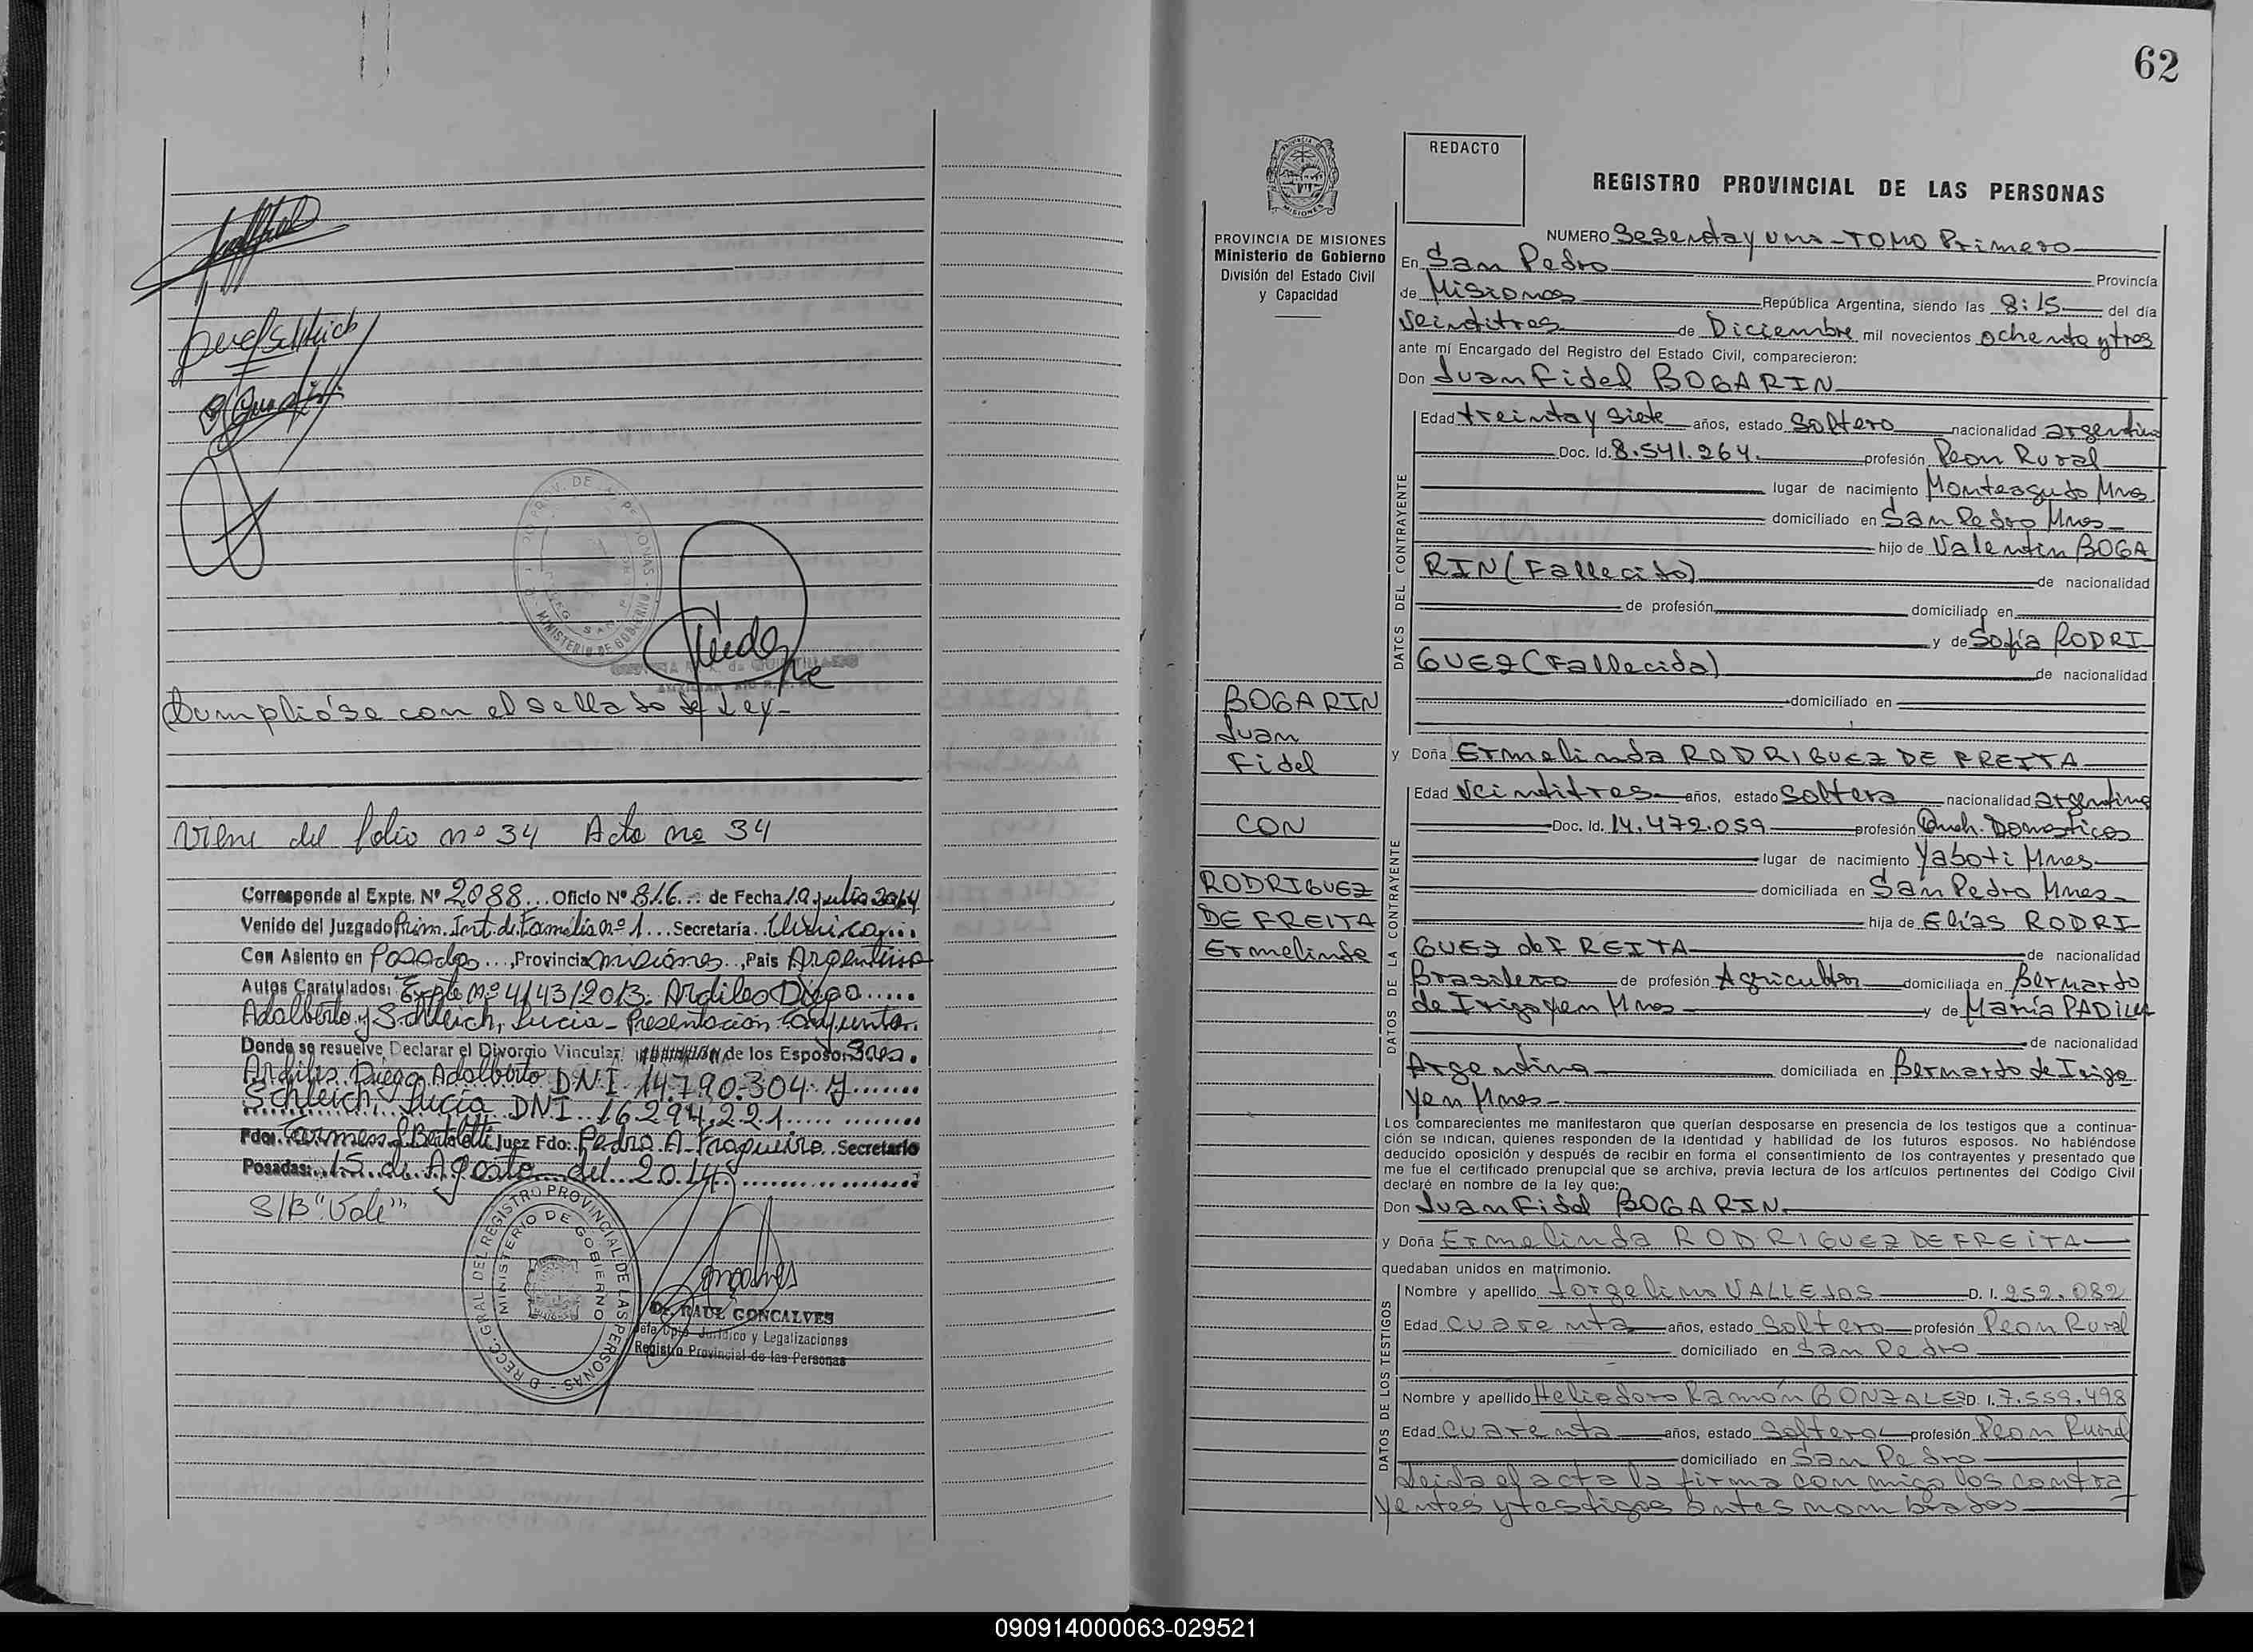 Cumplióse con el sellado de Ley-
Viene del folio nº 34 Acta nº 34
Corresponde al Expte. Nº 2088... Oficio Nº 816... de Fecha 10 julio 2014
Venido del Juzgado Prim. Inst. de Familia nº 1... Secretaría.. Unica...
Con Asiento en Posadas..., Provincia misiones.., País Argentina
Autos Caratulados: Expte Nº 4143/2013. Ardiles Diego.....
Adalberto y Schleich, Lucia - Presentación Conjunta.
Donde se resuelve Declarar el Divorcio Vincular de los Esposos Sres.
Ardiles Diego Adalberto DNI 14.790.304 y.......
Schleich, Lucia DNI 16.294.221...........
Fdo: Carmen Bertoletti Juez Fdo: Pedro A. Fragueiro.. Secretario
Posadas:..15. de. Agosto del.. 2014...............
S/B "Vale"
DIRECC. GRAL. DEL REGISTRO PROVINCIAL DE LAS PERSONAS -
MINISTERIO DE GOBIERNO
Dr. RAUL GONCALVES
Jefe Dpto Jurídico y Legalizaciones
Registro Provincial de las Personas
62
REDACTO
REGISTRO PROVINCIAL DE LAS PERSONAS
MISIONES
PROVINCIA DE MISIONES
Ministerio de Gobierno
División del Estado Civil
y Capacidad
NUMERO Sesenta y uno - TOMO Primero
En San Pedro Provincia
de Misiones República Argentina, siendo las 8:15 del día
Veintitres de Diciembre mil novecientos ochenta y tres
ante mí Encargado del Registro del Estado Civil, comparecieron:
Don Juan Fidel BOGARIN
DATOS DEL CONTRAYENTE
Edad treinta y siete años, estado Soltero nacionalidad argentino
Doc. Id. 8.541.264. profesión Peon Rural
lugar de nacimiento Monteagudo Mnes
domiciliado en San Pedro Mnes-
hijo de Valentin BOGA
RIN (Fallecido) de nacionalidad
de profesión domiciliado en
y de Sofía RODRI
GUEZ (Fallecida) de nacionalidad
domiciliado en
BOGARIN
Juan
Fidel
CON
RODRIGUEZ
DE FREITA
Ermelinda
y Doña Ermelinda RODRIGUEZ DE FREITA
DATOS DE LA CONTRAYENTE
Edad Veintitres años, estado Soltera nacionalidad argentina
Doc. Id. 14.472.059 profesión Queh. Domesticos
lugar de nacimiento Yaboti Mnes
domiciliada en San Pedro Mnes-
hija de Elías RODRI
GUEZ de FREITA de nacionalidad
Brasilera de profesión Agricultor domiciliada en Bernardo
de Irigoyen Mnes y de María PADILLA
de nacionalidad
Argentina domiciliada en Bernardo de Irigo
yen Mnes-
Los comparecientes me manifestaron que querían desposarse en presencia de los testigos que a continua-
ción se indican, quienes responden de la identidad y habilidad de los futuros esposos. No habiéndose
deducido oposición y después de recibir en forma el consentimiento de los contrayentes y presentado que
me fue el certificado prenupcial que se archiva, previa lectura de los artículos pertinentes del Código Civil
declaré en nombre de la ley que:
Don Juan Fidel BOGARIN.
y Doña Ermelinda RODRIGUEZ DE FREITA
quedaban unidos en matrimonio.
DATOS DE LOS TESTIGOS
Nombre y apellido Jorgelino VALLEJOS D. I. 252.082
Edad cuarenta años, estado Soltero profesión Peon Rural
domiciliado en San Pedro
Nombre y apellido Heliodoro Ramón GONZALEZ D. I. 7.559.498
Edad cuarenta años, estado Soltero profesión Peon Rural
domiciliado en San Pedro
Leida el acta la firma conmigo los contra
yentes y testigos antes nombrados
090914000063-029521